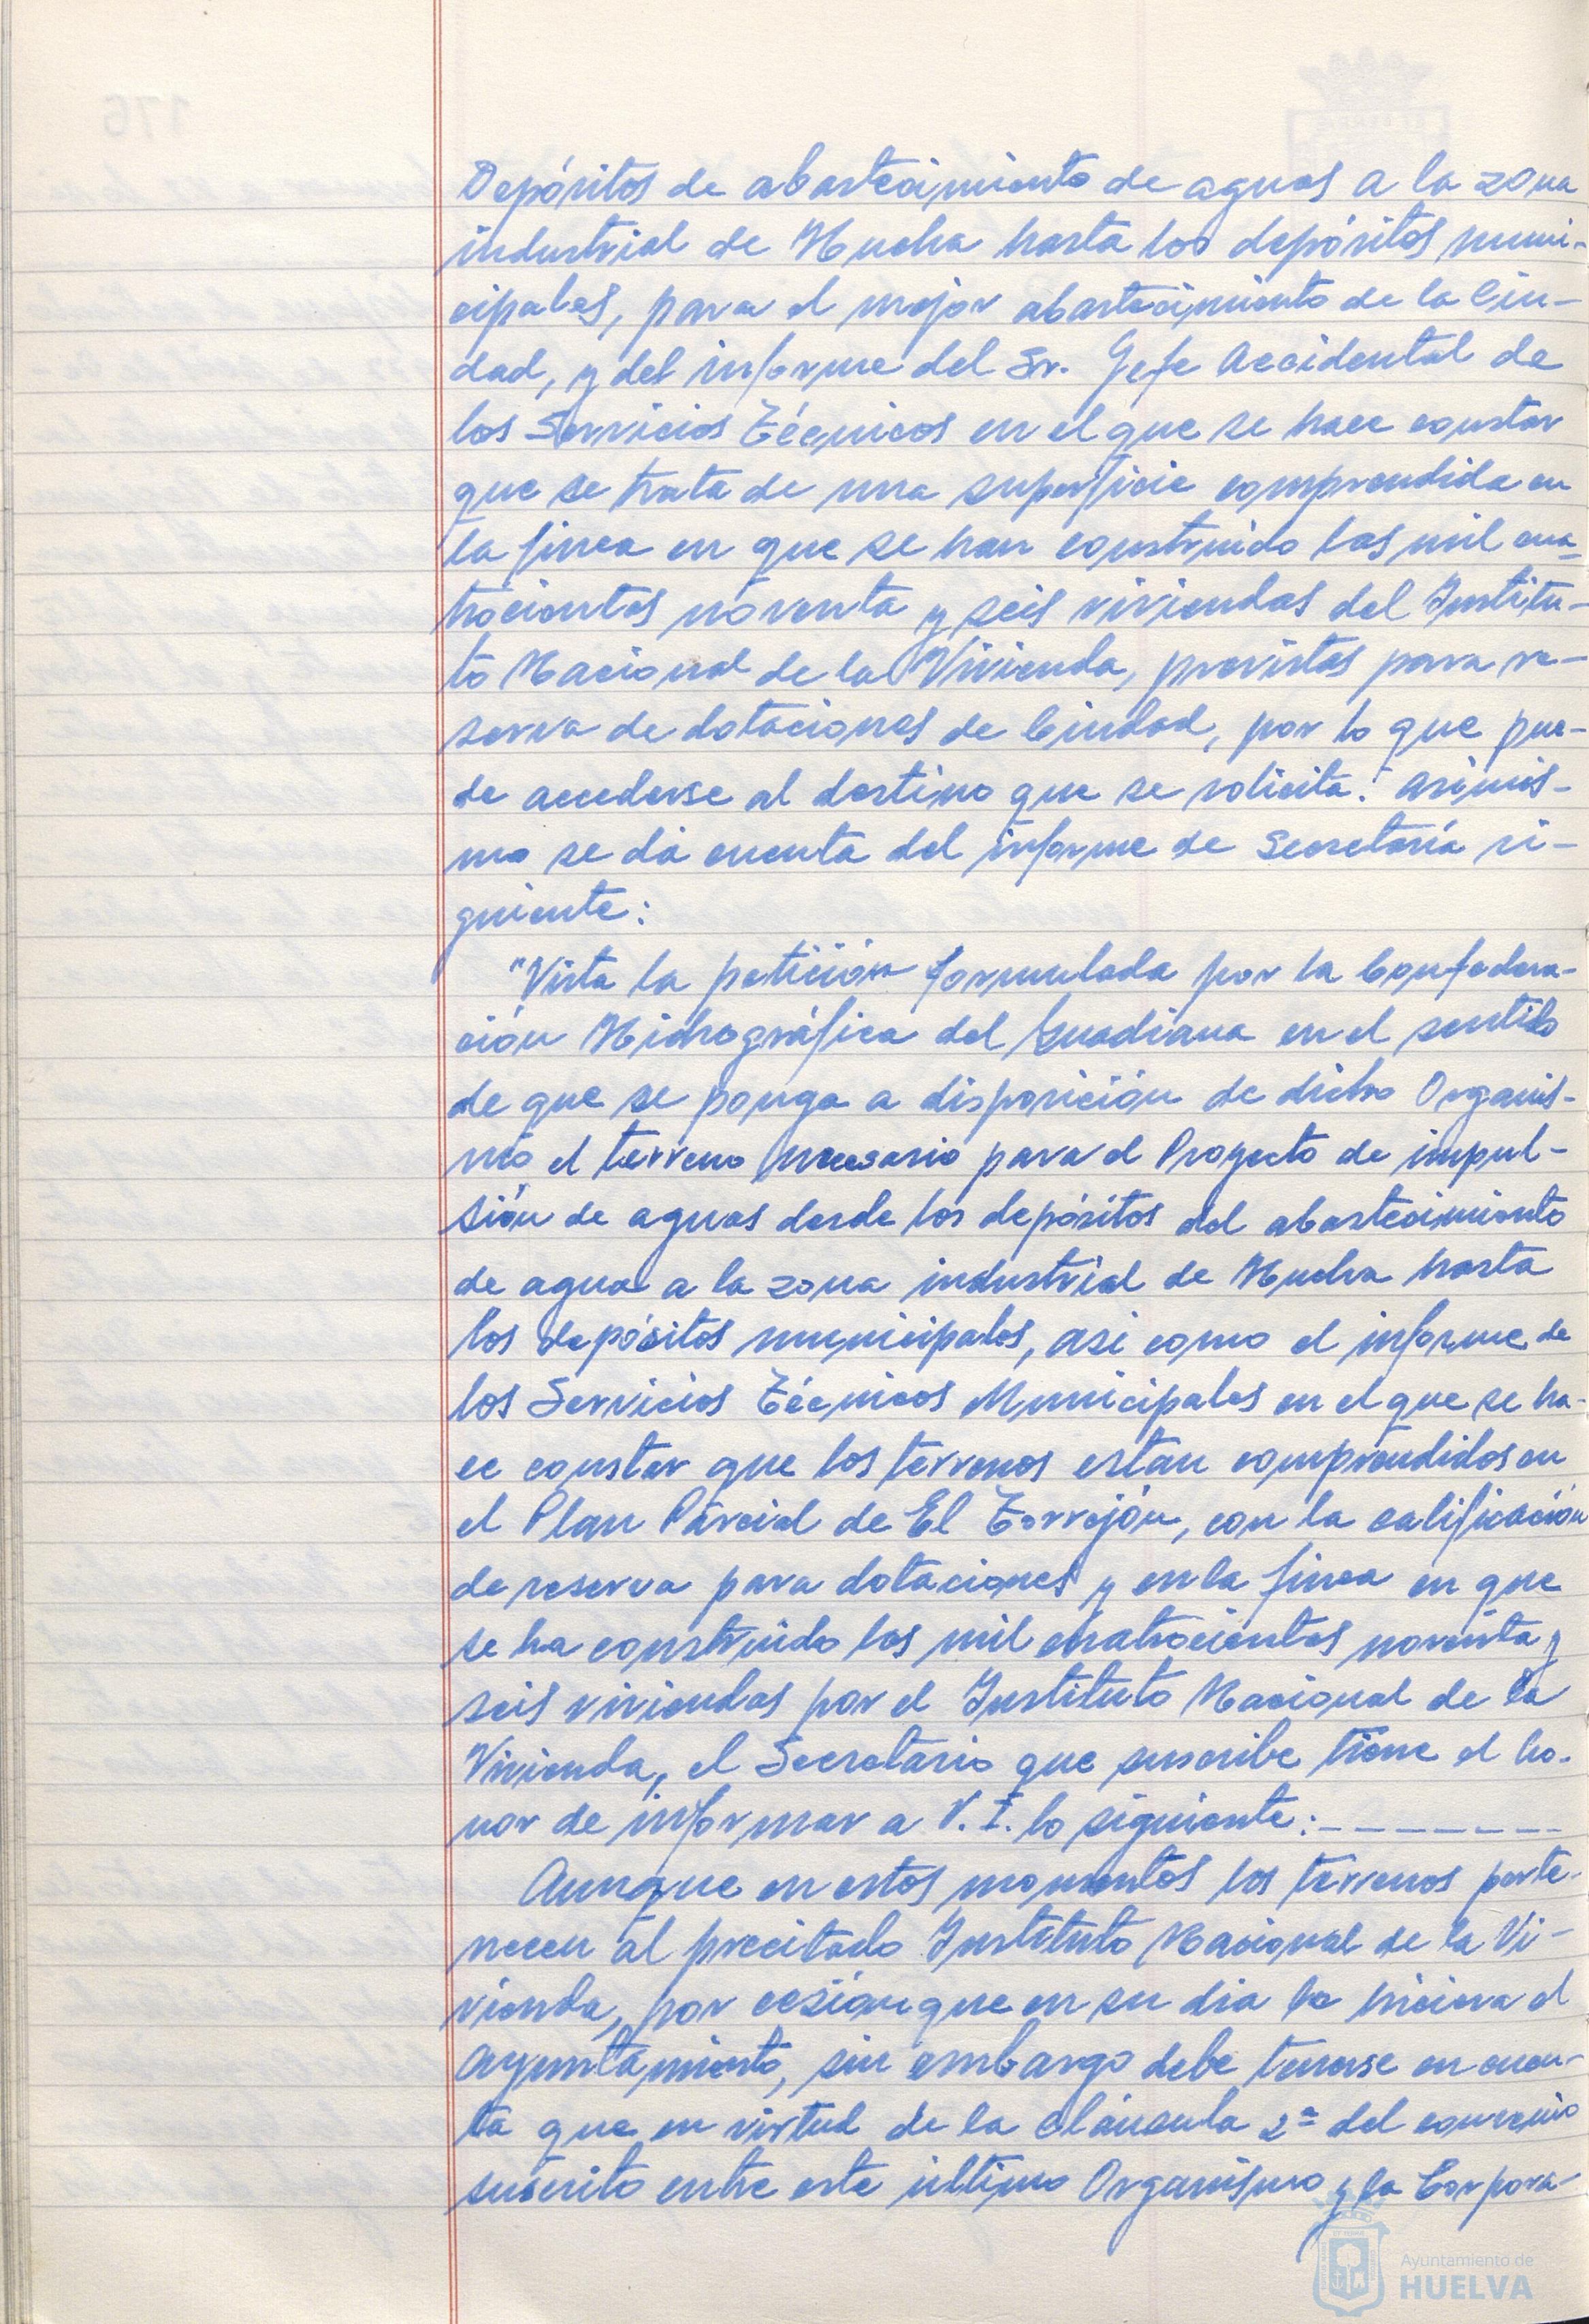 Depósitos de abastecimiento de aguas a la zona
industrial de Huelva hasta los depósitos muni-
cipales, para el mejor abastecimiento de la Ciu-
dad, y del informe del Sr. Jefe Accidental de
los Servicios Técnicos en el que se hace constar
que se trata de una superficie comprendida en
la finca en que se han construido las mil cua-
trocientas noventa y seis viviendas del Institu-
to Nacional de la Vivienda, previstas para re-
serva de dotaciones de Ciudad, por lo que pue-
de accederse al destino que se solicita. Asimis-
mo se dá cuenta del informe de Secretaría si-
guiente:
"Vista la petición formulada por la Confedera-
ción Hidrográfica del Guadiana en el sentido
de que se ponga a disposición de dicho Organis-
mo el terreno necesario para el Proyecto de impul-
sión de aguas desde los depósitos del abastecimiento
de agua a la zona industrial de Huelva hasta
los depósitos municipales, asi como el informe de
los Servicios Técnicos Municipales en el que se ha-
ce constar que los terrenos estan comprendidos en
el Plan Parcial de El Torrejón, con la calificación
de reserva para dotaciones y en la finca en que
se ha construido las mil cuatrocientas noventa y
seis viviendas por el Instituto Nacional de la
Vivienda, el Secretario que suscribe tiene el ho-
nor de informar a V. I. lo siguiente:- - - - - - -
Aunque en estos momentos los terrenos perte-
necen al precitado Instituto Nacional de la Vi-
vienda, por cesión que en su dia le hiciera el
Ayuntamiento, sin embargo debe tenerse en cuen-
ta que en virtud de la cláusula 2ª del convenio
suscrito entre este último Organismo y la Corpora-
Ayuntamiento de
HUELVA